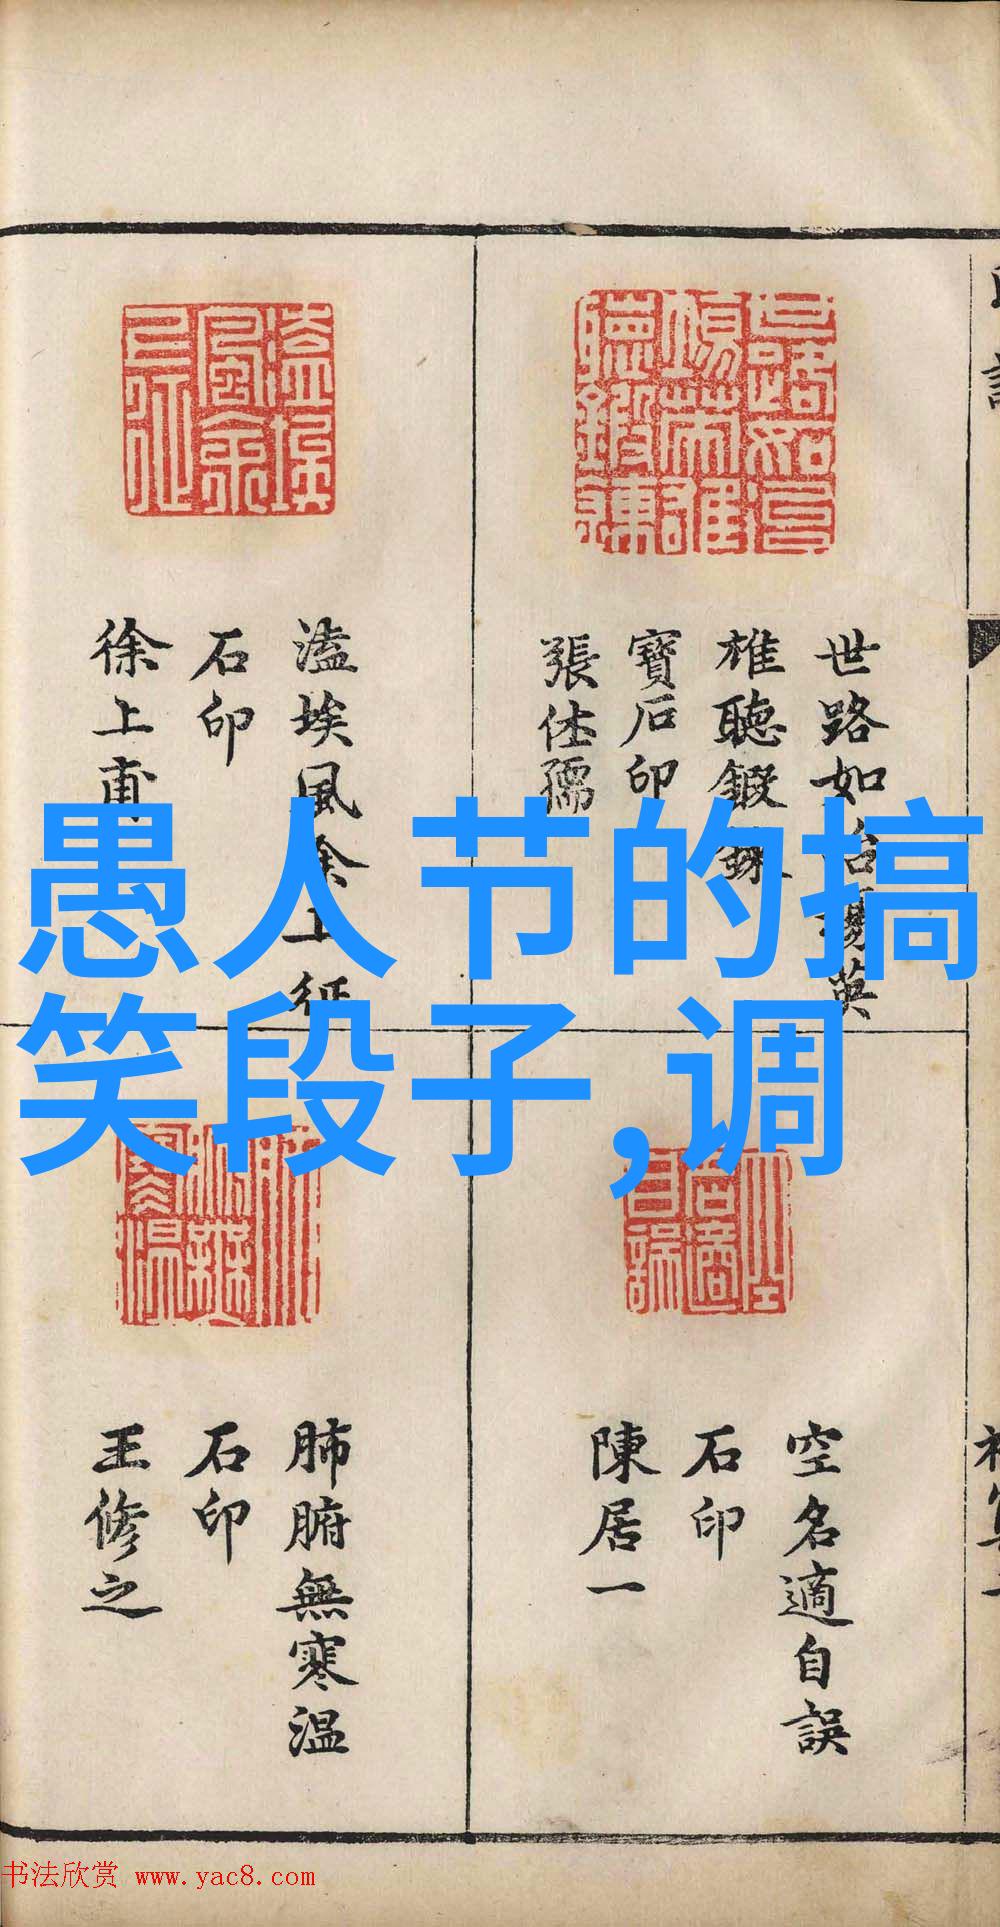 世路如台錫英
雄聴鍛鍊
寶石印
張仕孺
溘埃風余上征
石印
徐上甫
愚人节的搞
笑段子,调
空名適自誤
石印
陳居一
肺腑無寒温
石印
王修之
书法欣赏 www.yac8.com